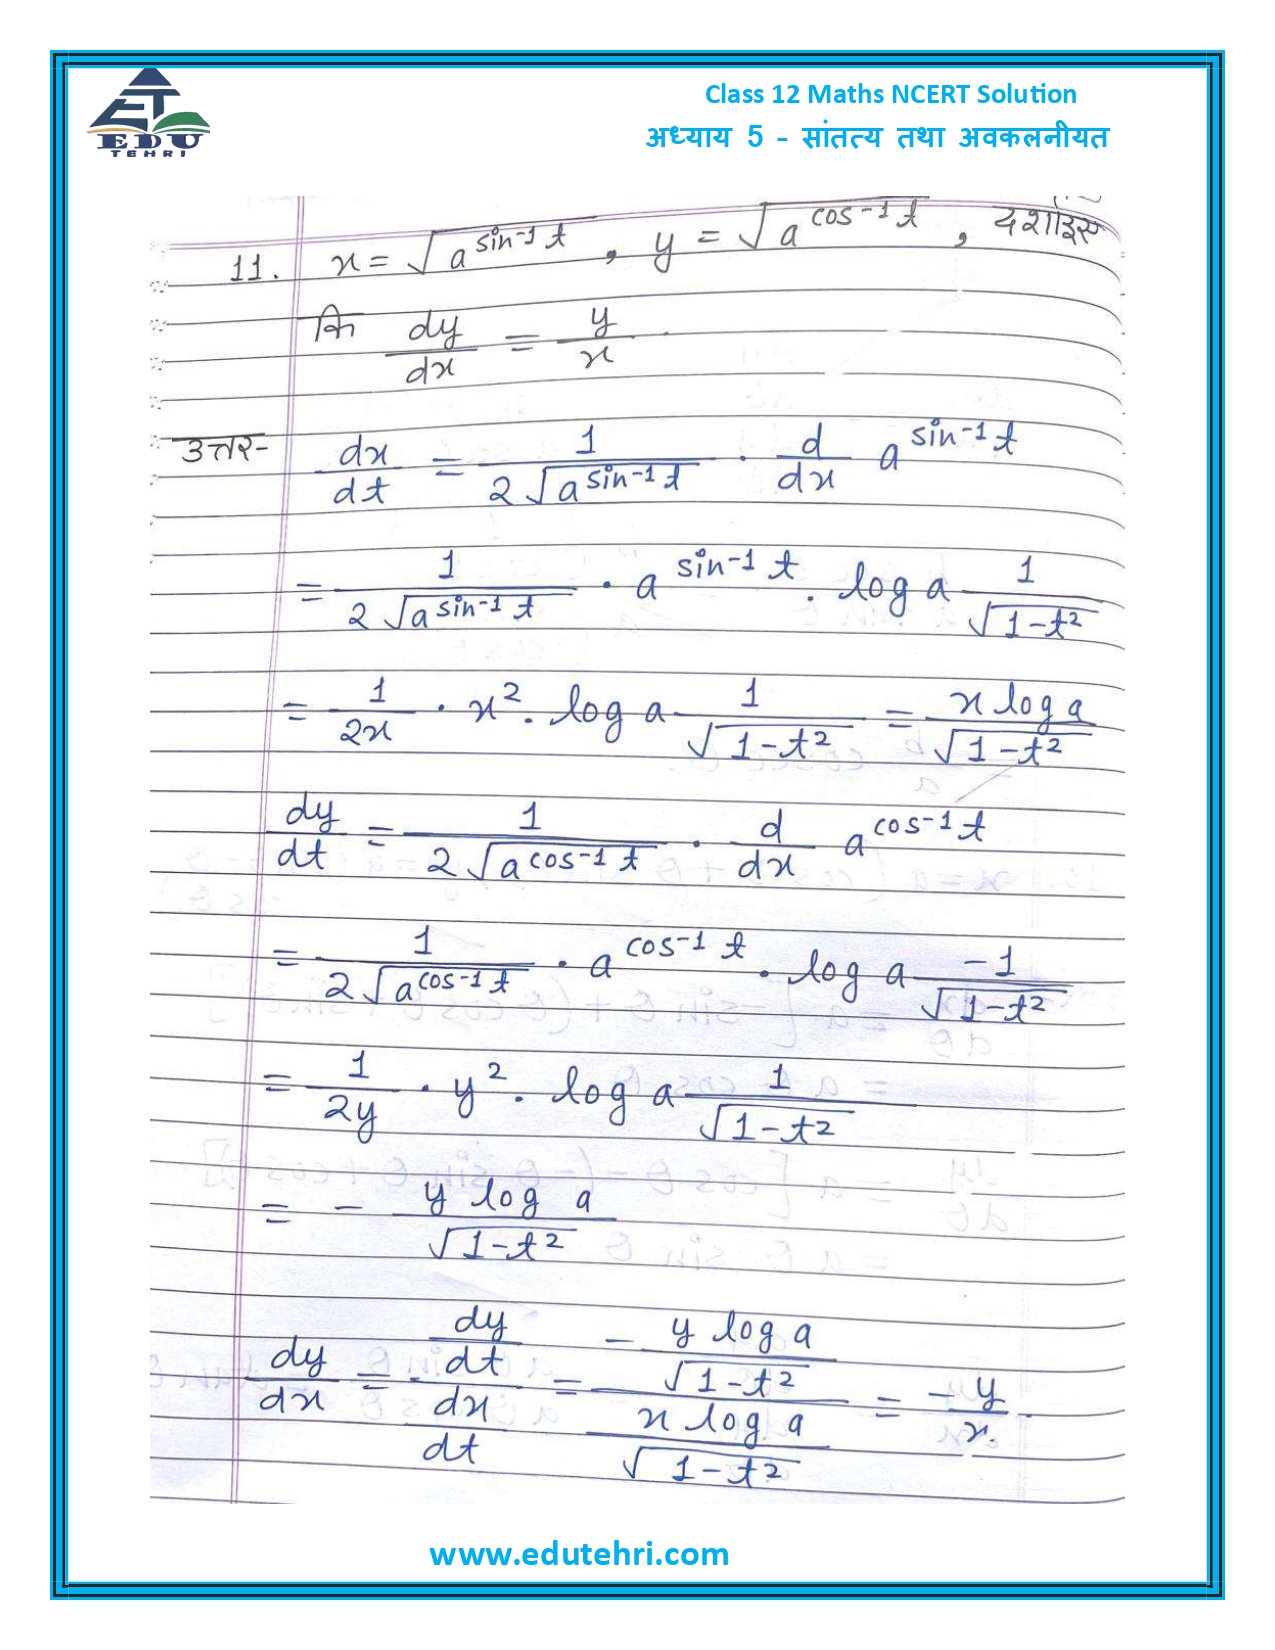 EDU
TEHRI
Class 12 Maths NCERT Solution
अध्याय 5 - सांतत्य तथा अवकलनीयत
11. x = √(a^(sin⁻¹ t)) , y = √(a^(cos⁻¹ t)) , दर्शाइए
कि dy/dx = y/x
उत्तर- dx/dt = 1/(2√(a^(sin⁻¹ t))) · d/dx a^(sin⁻¹ t)
= 1/(2√(a^(sin⁻¹ t))) · a^(sin⁻¹ t) · log a 1/√(1-t²)
= 1/2x · x² · log a 1/√(1-t²) = x log a/√(1-t²)
dy/dt = 1/(2√(a^(cos⁻¹ t))) · d/dx a^(cos⁻¹ t)
= 1/(2√(a^(cos⁻¹ t))) · a^(cos⁻¹ t) · log a -1/√(1-t²)
= 1/2y · y² · log a 1/√(1-t²)
= - y log a/√(1-t²)
dy/dx = (dy/dt)/(dx/dt) = (- y log a/√(1-t²))/(x log a/√(1-t²)) = -y/x.
www.edutehri.com